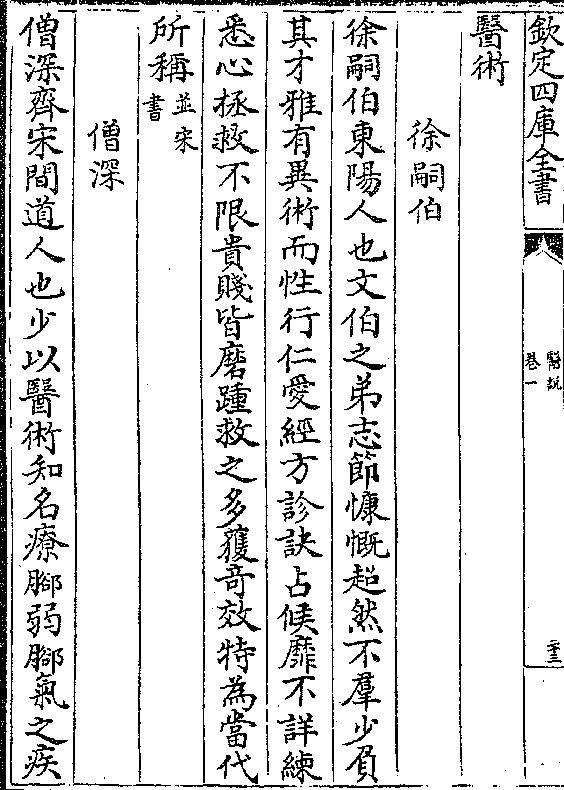 欽定四庫全書
醫說
卷一
二十三
醫術
徐嗣伯
徐嗣伯東陽人也文伯之弟志節慷慨超然不羣少負
其才雅有異術而性行仁愛經方診訣占候靡不詳練
悉心拯救不限貴賤皆磨踵救之多獲竒效特為當代
所稱並宋書
僧深
僧深齊宋間道人也少以醫術知名療腳弱腳氣之疾